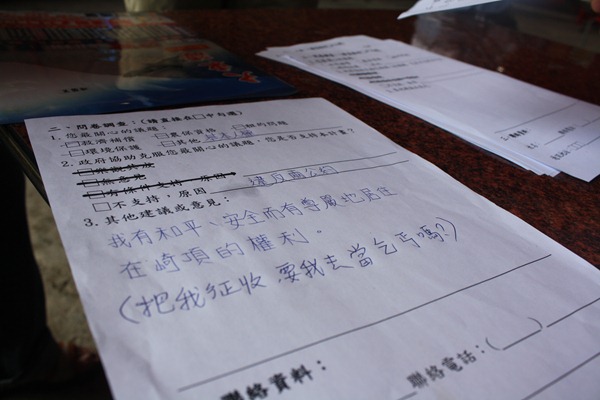 二、問卷調查：(請直接在□中勾選)
1. 您最關心的議題：
□救濟補償 □農保資格 □
□環境保護 □其他
2. 政府協助克服您最關心的議題，您是否支持本計畫？
□不支持，原因 違反兩公約
3. 其他建議或意見：
我有和平、安全而有尊嚴地居住
在崎頂的權利。
(把我征收，要我去當乞丐嗎？)
聯絡資料：
聯絡電話：( )